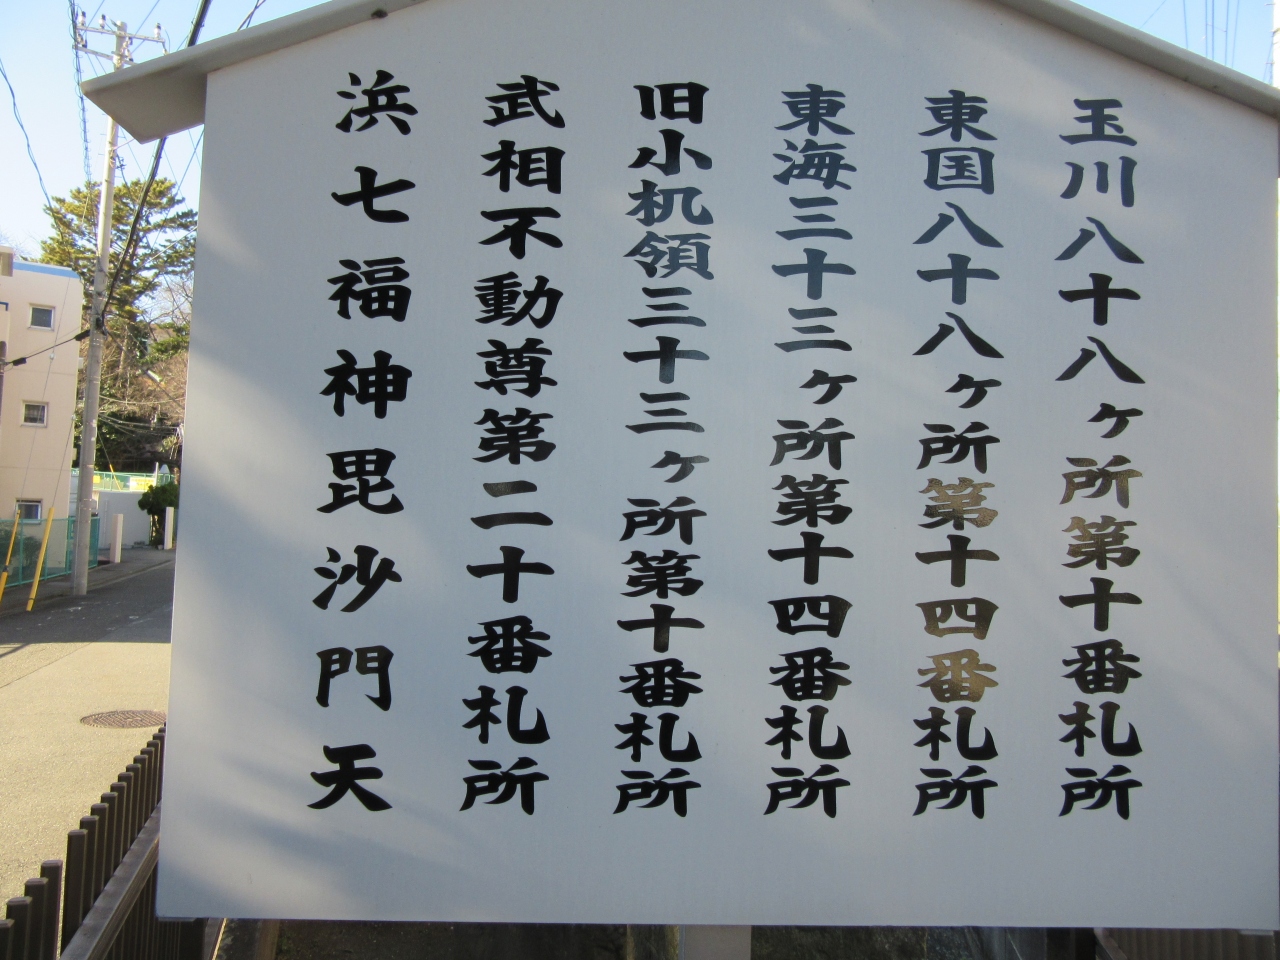 玉川八十八ヶ所第十番札所
東国八十八ヶ所第十四番札所
東海三十三ヶ所第十四番札所
旧小机領三十三ヶ所第十番札所
武相不動尊第二十番札所
浜七福神毘沙門天